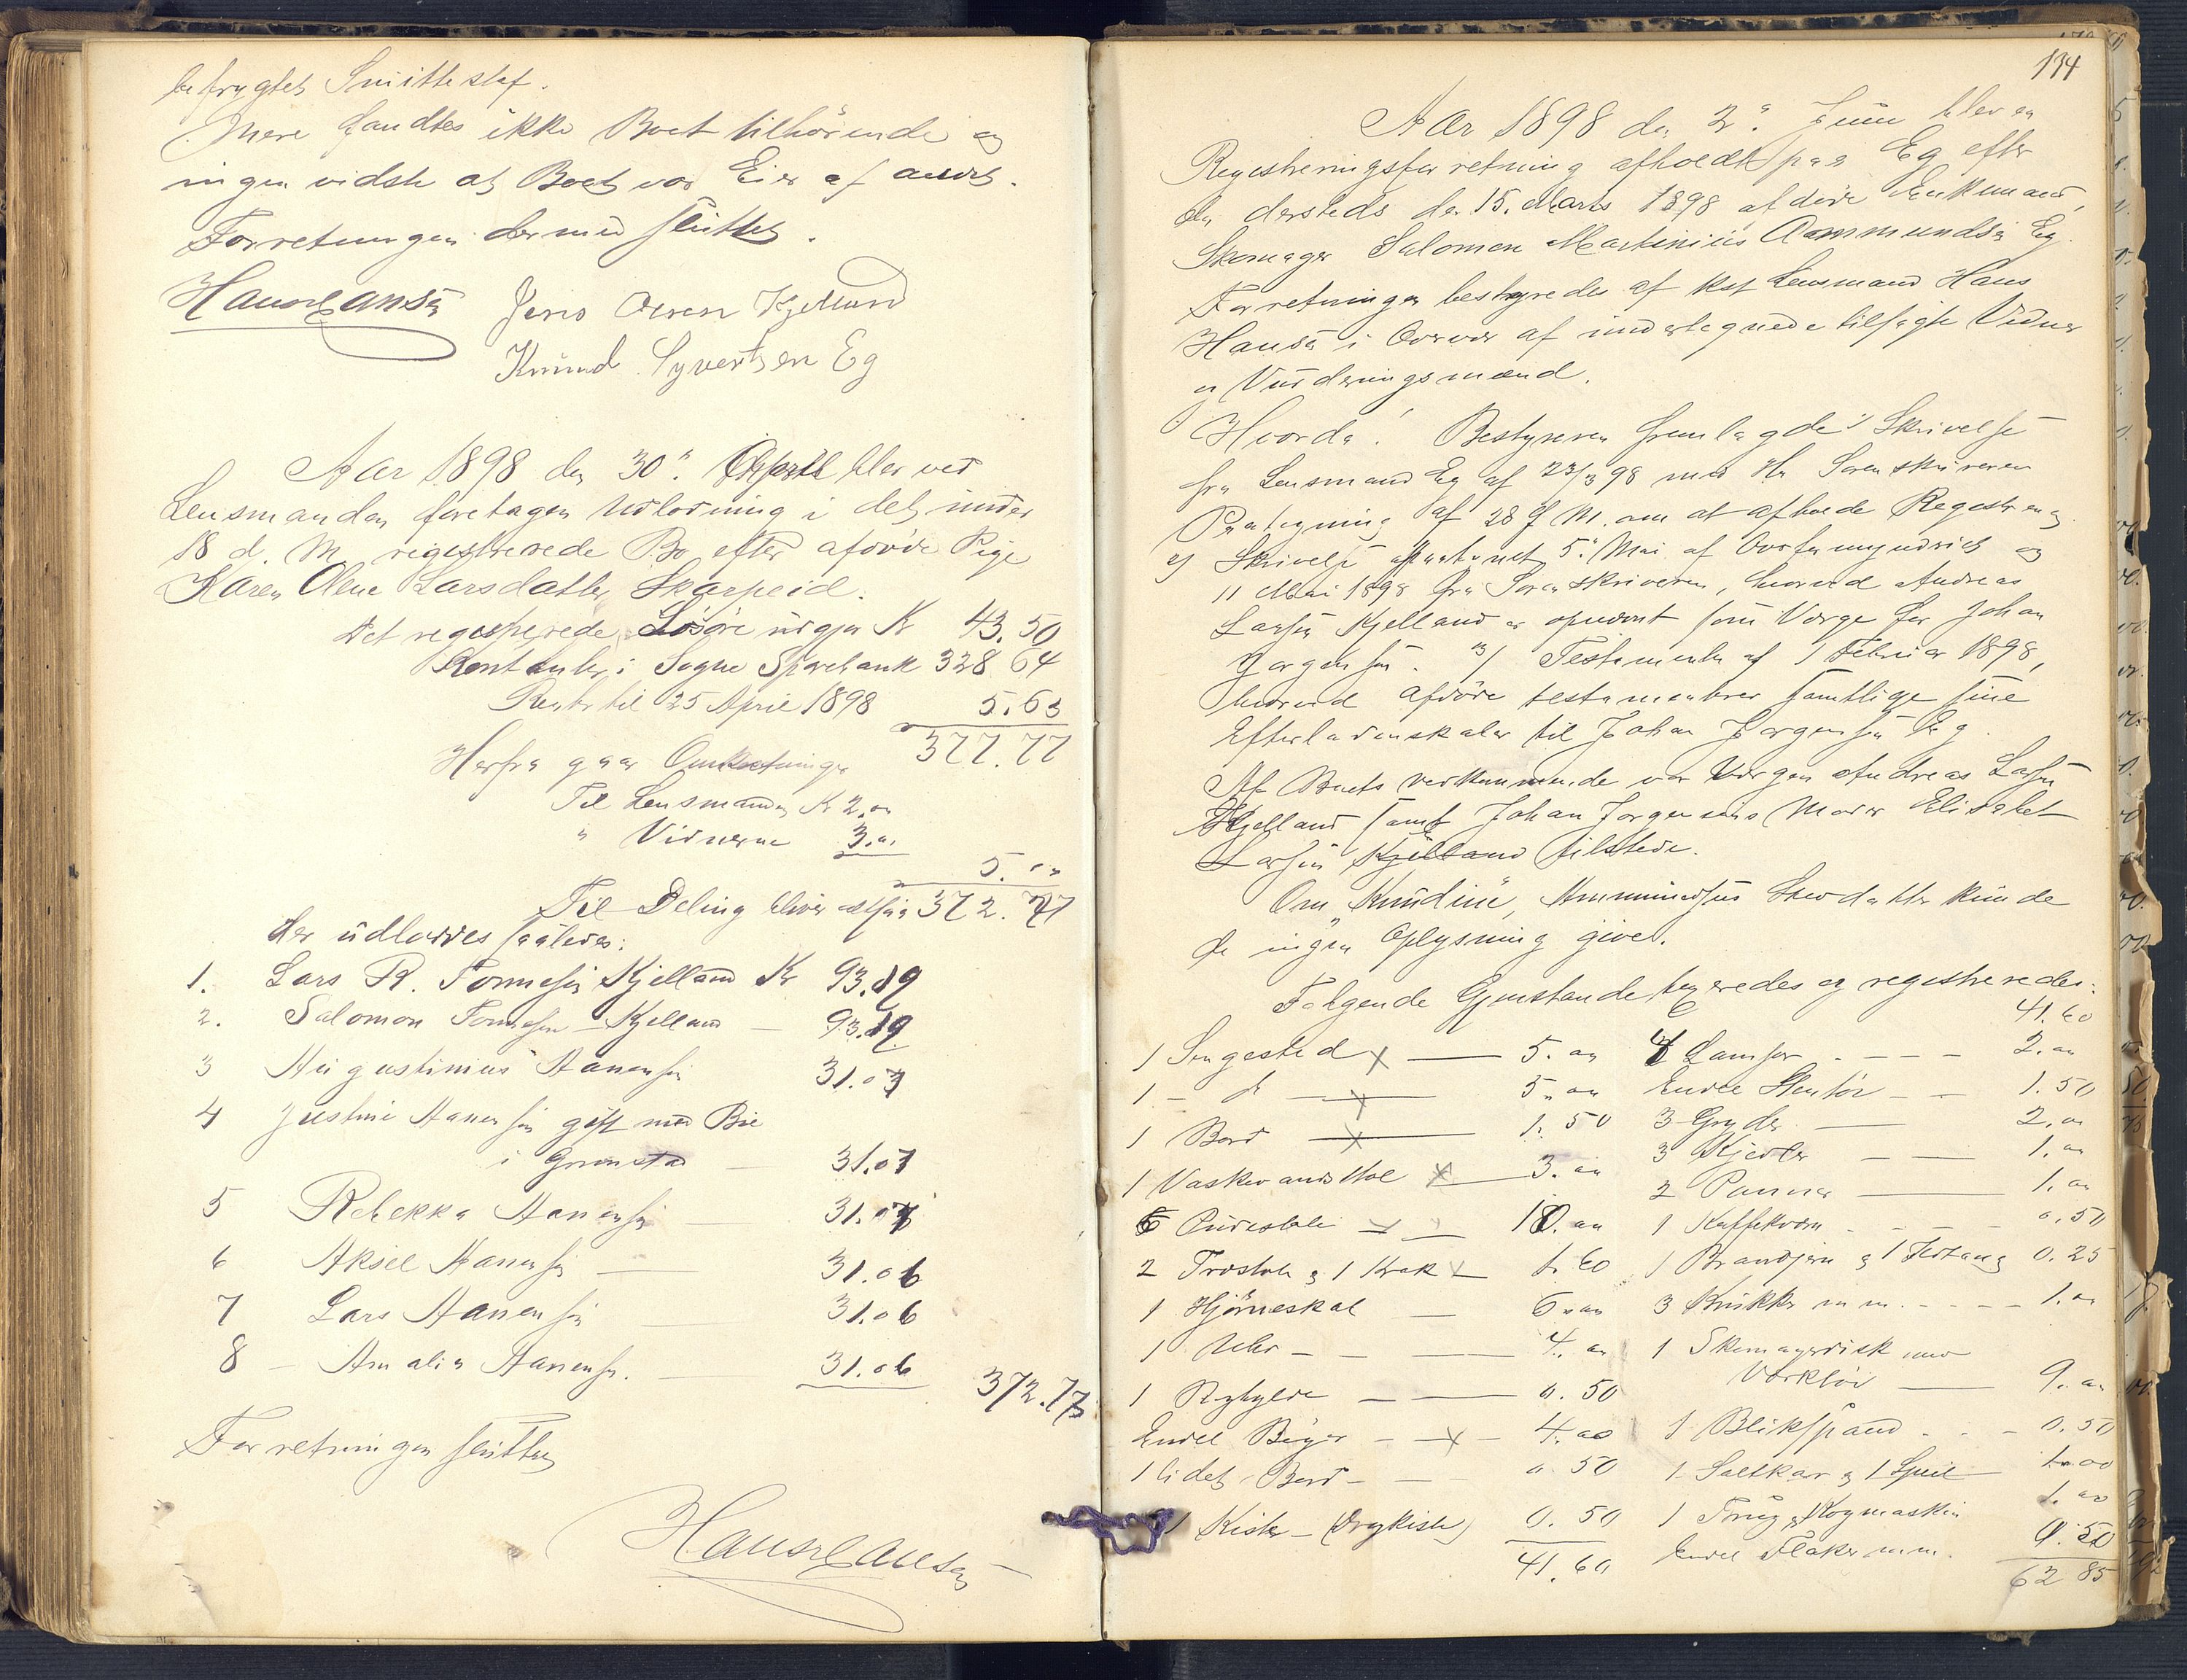 befrygtet Smittestof.
Mere fandtes ikke Boet tilhørende og
ingen vidste at Boet var Eier af andet.
Forretningen dermed sluttet.
Hans Hansen Jens Olsen Kjelland
Knud Syvertsen Eg
Aar 1898 den 30" April blev ved
Lensmanden foretagen Udlodning i det under
18 d. M. registrerede Bo efter afdøde Pige
Karen Olene Larsdatter Skarpeid.
Det registrerede Løsøre udgjør Kr 43.50
Kontanter i Sogne Sparebank 328 64
Renter til 25 April 1898 5.63
377.77
Herfra gaar Omkostninger
Til Lensmanden Kr 2.00
" Vidnerne 3.00
5.00
Til Deling bliver altsaa 372.77
der udloddes saaledes:
1. Lars R. Tønnesen Kjelland Kr 93.19
2. Salomon Tønnesen Kjelland — 93.19
3 Augustinius Aanensen 31.07
4 Justine Aanensen gift med Bie
i Grimstad — 31.07
5 Rebekka Aanensen — 31.07
6 Aksel Aanensen — 31.06
7 Lars Aanensen — 31.06
8 — Amalia Aanensen. — 31.06
372.77
Forretningen sluttet
Hans Hansen
134
Aar 1898 den 2". Juni blev en
Registreringsforretning afholdt paa Eg efter
den dersteds den 15. Marts 1898 afdøde Enkemand,
Skomager Salomon Martinius Aammundsen Eg.
Forretningen bestyredes af kst Lensmand Hans
Hansen i Overvær af undertegnede tilsagte Vidner
og Vurderingsmænd.
Hvorda! Bestyreren fremlagde 1 Skrivelse
fra Lensmand Eg af 23/3 98 med Hr Sorenskriverens
Paategning af 28 f M. om at afholde Registrering
2/ Skrivelse 5" Mai af Overformynderiet og
11 Mai 1898 fra Sorenskriveren, hvorved Andreas
Larsen Kjelland er opnævnt som Værge for Johan
Jørgensen. 3/ Testamente af 1 Februar 1898,
hvorved afdøde testamenterer samtlige sine
Efterladenskaber til Johan Jørgensen Eg.
Af Boets vedkommende var Værgen Andreas Larsen
Kjelland samt Johan Jørgensens Moder Elisabet
Larsen Kjelland tilstede.
Om "Knudine", Ammundsens Stevdatter kunde
de ingen Oplysning give.
Følgende Gjenstande taxeredes og registreredes:
41.60
1 Sengested x — 5.00 4 Lamper - - - - 2.00
1 - do — x — 5.00 Endel Stentøi - - 1.50
1 Bord — x — 1.50 3 Gryder — 2.00
1 Vaskevandsstol x — 3.00 3 Kjedler — — 1.00
2 Panner — 1.00
6 Pindestole x — 10.00 1 Kaffekværn - - - - 0.50
2 Træstole & 1 Krak x — 1.60 1 Brandjern & 1 Ildtang 0.25
1 Hjørneskab — 6.00 3 Krukker m m. - - - - 1.00
1 Uhr - — — 4.00 1 Skomagerdisk med
Værktøi — 9.00
1 Røghylde — — 0.50
Endel Bøger - x - 4.00 1 Blikspand - - - 0.50
1 lidet Bord — — 0.50 1 Saltkar & 1 Speil — 1.00
1 Kiste — (Dragkiste) 0.50 1 Trug & Kogmaskin 1.00
Endel Flasker m.m. 0.50
41.60 62 85